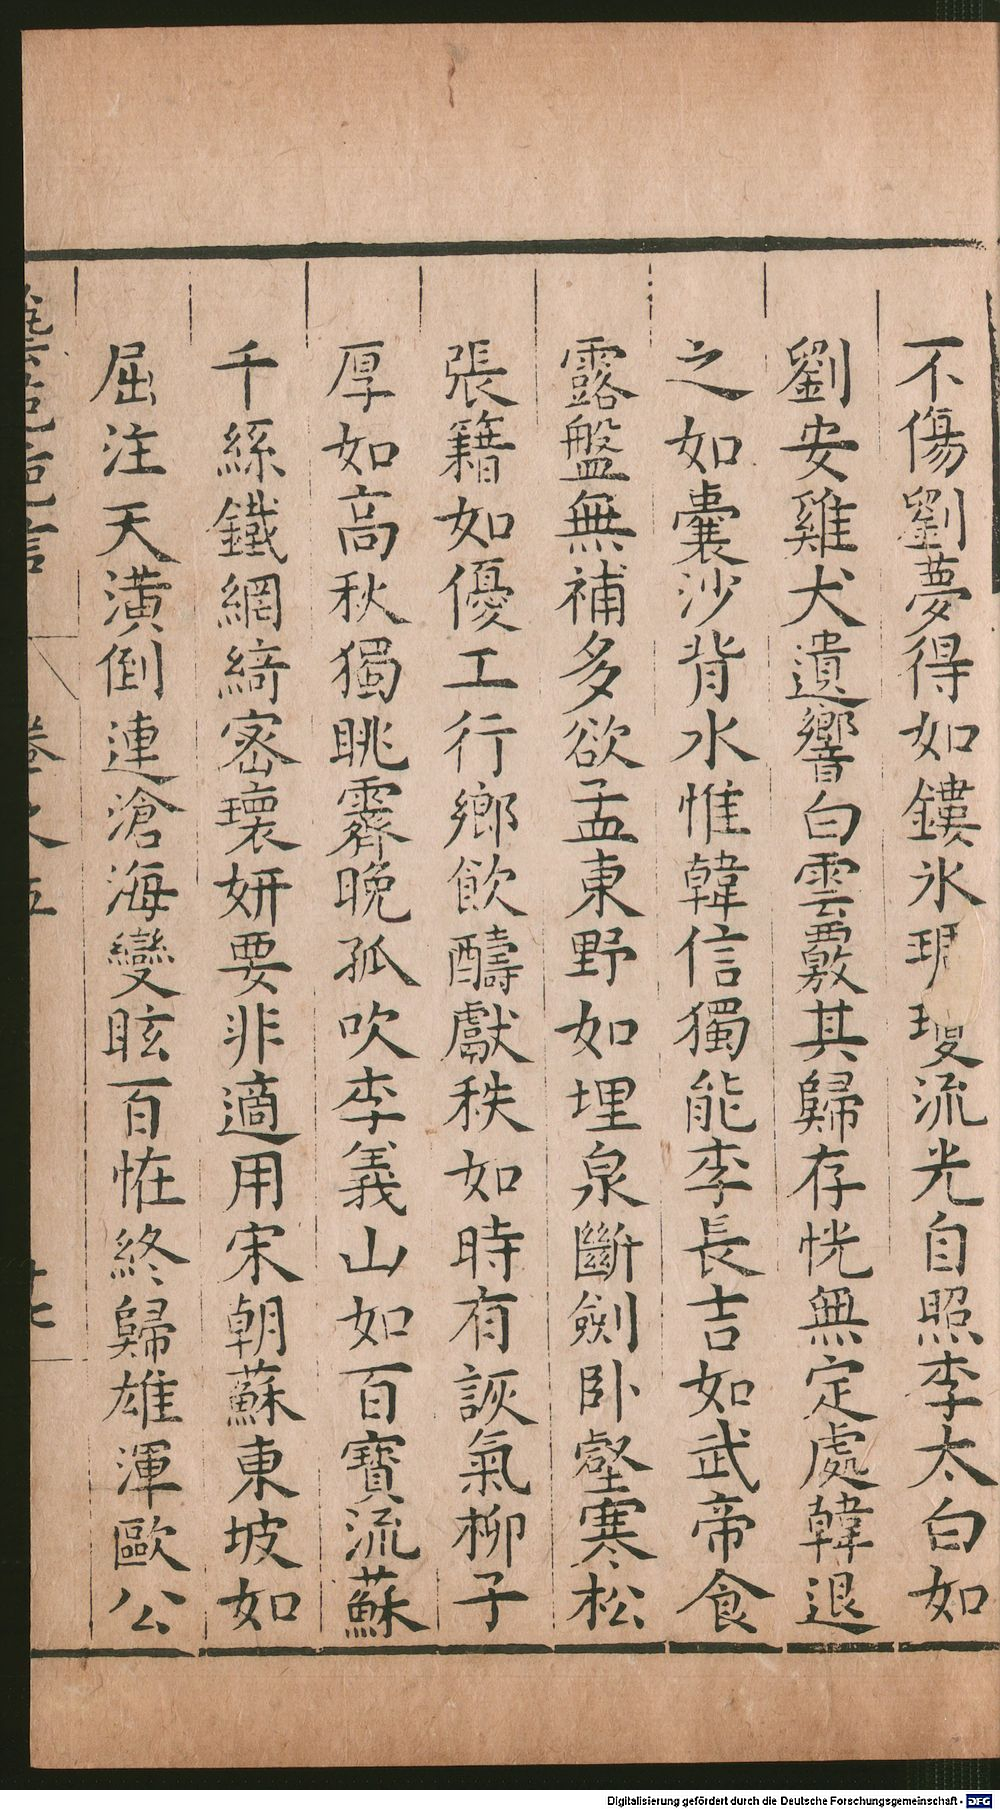 不傷劉夢得如鏤氷琱瓊流光自照李太白如
劉安雞犬遺響白雲覈其歸存恍無定處韓退
之如囊沙背水惟韓信獨能李長吉如武帝食
露盤無補多欲孟東野如埋泉斷劍卧壑寒松
張籍如優工行鄉飲醻獻秩如時有詼氣柳子
厚如高秋獨眺霽晚孤吹李義山如百寶流蘇
千絲鐵網綺宻瓌妍要非適用宋朝蘇東坡如
屈注天潢倒連滄海變眩百恠終歸雄渾歐公
藝苑巵言
卷之五
十七
Digitalisierung gefördert durch die Deutsche Forschungsgemeinschaft - DFG